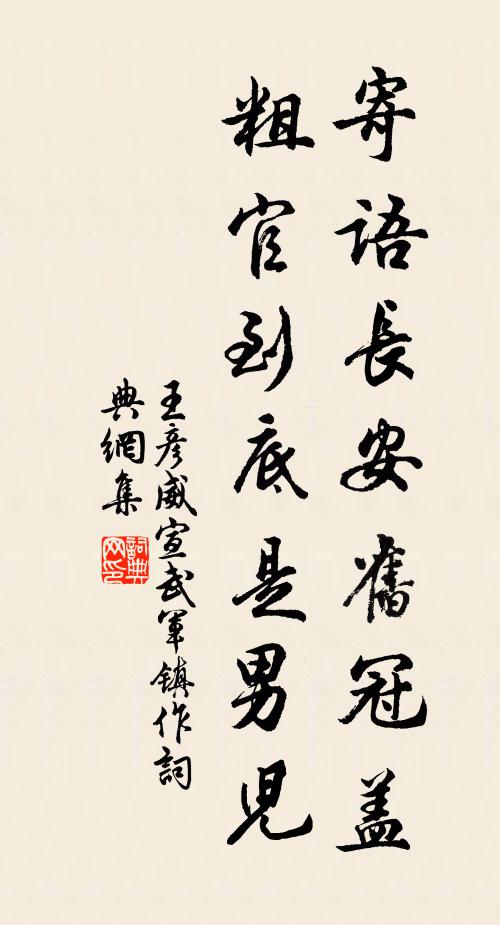 寄語長安舊冠蓋
粗官到底是男兒
王彥威宣武軍鎮作詞
典網集
詞典
网印